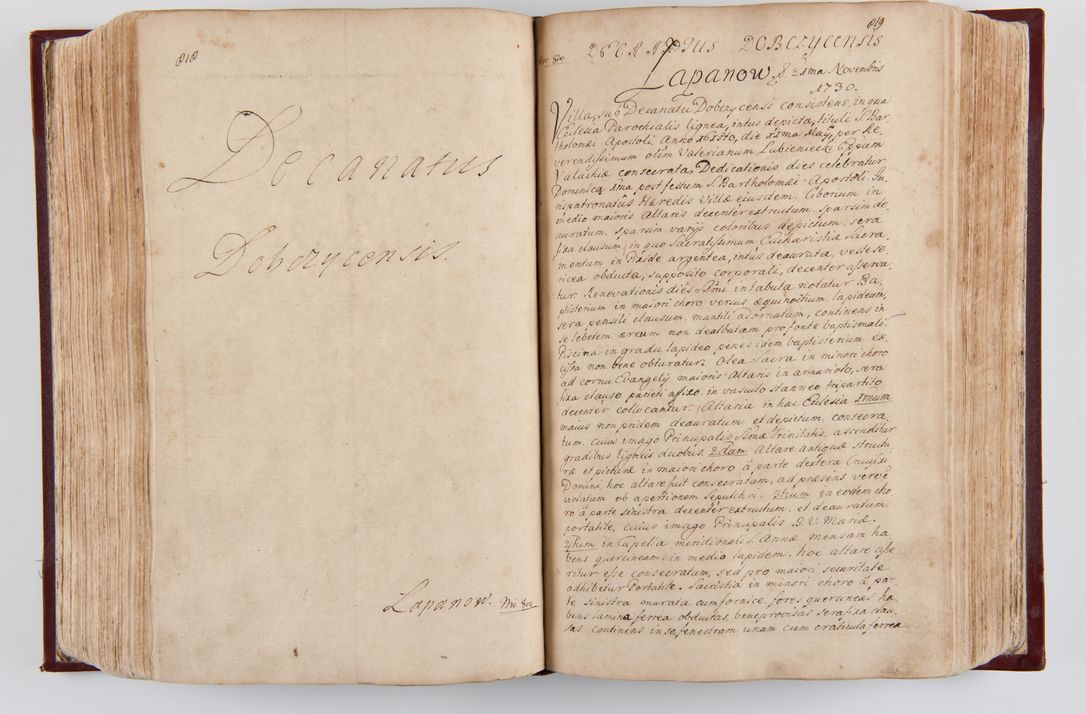 818
Decanatus
Dobczycensis.
Lapanow.
819
DECANATUS DOBCZYCENSIS
Lapanow 8. Xma Novembris
1730.
Villa, sub Decanatu Dobczycensi consistens, in qua
Ecclesia Parochialis lignea, intus depicta, tituli S. Bar-
tholomæi Apostoli Anno die Maÿ, per Re-
verendissimum olim Valerianum Lubieniecki Eppum
Valachiæ consecrata, Dedicationis dies celebratur
Dominica 1ma post festum S. Bartholomæi Apostoli. Ju-
rispatronatûs Hæredis Villæ ejusdem. Ciborium in
medio maioris Altaris decenter extructum, sparsim de-
auratum, sparsim varÿs coloribus depictum, sera
fixa clausum, in quo Sacratissimum Eucharistiæ Sacra-
mentum in Pixide argentea, intus deaurata, veste se-
ricea obducta, supposito corporali, decenter asserva-
tur. Renovationis dies SSmi in tabula notatur. Ba-
ptisterium in maiori choro versus æquinoctium, lapideum,
sera pensili clausum, mantili adornatum, continens in
se lebetem æreum non dealbatum pro fonte baptismali.
Piscina in gradu lapideo penes idem baptisterium ex-
cisa non bene obturatur. Olea Sacra in minori choro
ad cornu Evangelÿ maioris Altaris in armariolo, sera
fixa clauso parieti affixo, in vasculo stanneo tripartito
decenter collocantur. Altaria in hac Ecclesia 1mum
maius non pridem deauratum et depictum, consecra-
tum, cuius imago Principalis SSmæ Trinitatis, ascenditur
gradibus ligneis duobus. 2dum Altare antiquæ structu-
ræ et picturæ in maiori choro à parte dextera Crucifixi
Domini, hoc altare fuit consecratum, ad præsens verò è
violatum ob apertionem sepulchri. 3tium in eodem cho-
ro à parte sinistra decenter extructum, et deauratum
portatile, cuius imago Principalis B. V. Mariæ.
4tum in Capella meridionali S. Annæ, mensam ha-
bens quercineam, in medio lapidem, hoc altare asse-
ritur esse consecratum, sed pro maiori securitate
adhibetur Portatile. Sacristia in minori choro à par-
te sinistra murata cum fornice, fores querceneas ha-
bens lamina ferrea obductas, bene provisas sera fixa clau-
sas, continens in se fenestram unam cum craticula ferrea